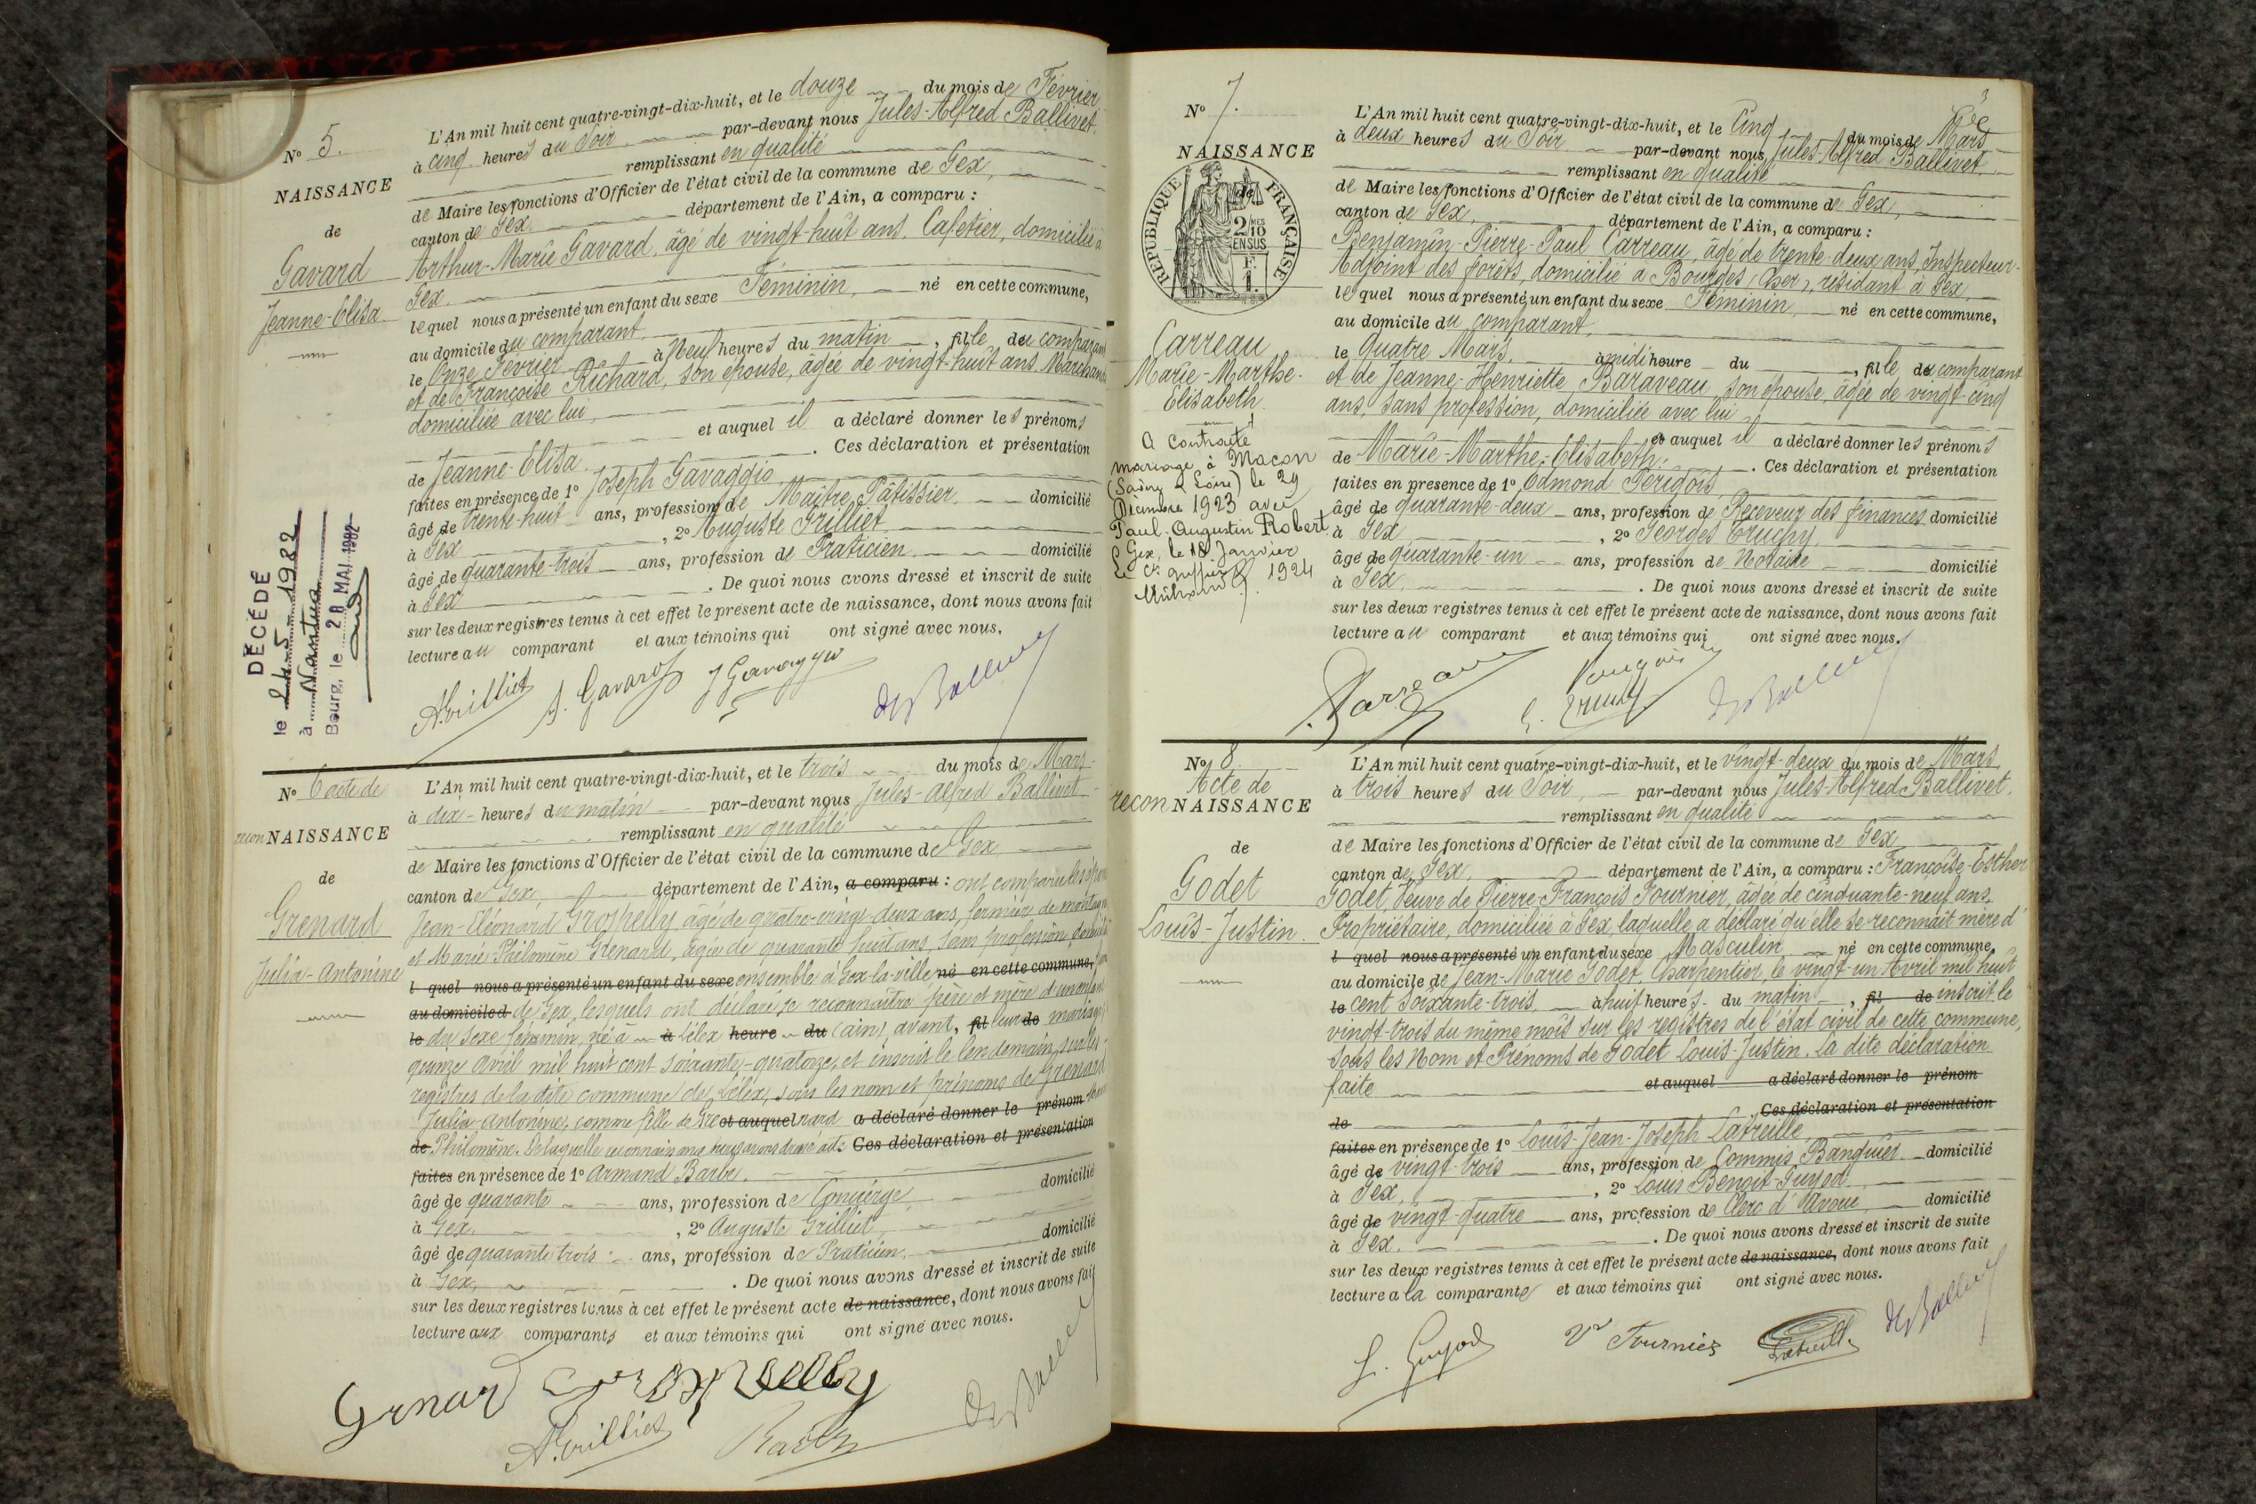 N° 5.
NAISSANCE
de
Gavard
Jeanne-Elisa
L'An mil huit cent quatre-vingt-dix-huit, et le douze du mois de Février
à cinq heures du Soir par-devant nous Jules-Alfred Ballivet.
remplissant en qualité
de Maire les fonctions d'Officier de l'état civil de la commune de Gex,
canton de Gex, département de l'Ain, a comparu :
Arthur-Marie Gavard, âgé de vingt-huit ans, Cafetier, domicilié à
Gex.
lequel nous a présenté un enfant du sexe Féminin, né en cette commune,
au domicile du comparant.
le Onze Février à Neuf heures du matin, fille du comparant
et de Françoise Richard, son épouse, âgée de vingt-huit ans Marchande
domiciliée avec lui,
et auquel il a déclaré donner les prénoms
de Jeanne-Elisa. Ces déclaration et présentation
faites en présence de 1° Joseph Gavaggio
âgé de trente-huit ans, profession de Maître Pâtissier domicilié
à Gex, 2° Auguste Grilliet
âgé de quarante-trois ans, profession de Praticien domicilié
à Gex. De quoi nous avons dressé et inscrit de suite
sur les deux registres tenus à cet effet le présent acte de naissance, dont nous avons fait
lecture au comparant et aux témoins qui ont signé avec nous.
A. Grilliet A. Gavard J Gavaggio J Ballivet
DÉCÉDÉ
le 24.5.1982
à Nantua
Bourg, le 28 MAI 1982
N° 6 acte de
reconNAISSANCE
de
Grenard
Julia-Antonine
L'An mil huit cent quatre-vingt-dix-huit, et le trois du mois de Mars
à dix heures du matin par-devant nous Jules-Alfred Ballivet
remplissant en qualité
de Maire les fonctions d'Officier de l'état civil de la commune de Gex
canton de Gex, département de l'Ain, a comparu : ont comparu les époux
Jean-Eléonard Grospelly âgé de quatre-vingt-deux ans, fermier de montagne
et Marie Philomène Grenard, âgée de quarante huit ans, sans profession, domiciliés
l quel nous a présenté un enfant du sexe ensemble à Gex-la-ville né en cette commune,
au domicile d de Gex, lesquels ont déclaré se reconnaître père et mère d'un enfant
le du sexe féminin, né à à Lélex heure du (ain) avant, fil leur de mariage
quinze avril mil huit cent soixante-quatorze, et inscrit le lendemain sur les
registres de la dite commune de Lélex, sous les nom et prénoms de Grenard
Julia-Antonine, comme fille de Gre et auquel nard a déclaré donner le prénom
de Philomène. De laquelle reconnaissance nous avons donné acte Ces déclaration et présentation
faites en présence de 1° Armand Barbe.
âgé de quarante ans, profession de Concierge domicilié
à Gex, 2° Auguste Grilliet,
âgé de quarante trois ans, profession de Praticien domicilié
à Gex. De quoi nous avons dressé et inscrit de suite
sur les deux registres tenus à cet effet le présent acte de naissance, dont nous avons fait
lecture aux comparants et aux témoins qui ont signé avec nous.
Grenard Grospelly
A. Grilliet Barbe J Ballivet
3
N° 7.
NAISSANCE
de
RÉPUBLIQUE FRANÇAISE
2 MES
10
EN SUS
F.
1.
Carreau
Marie-Marthe-
Elisabeth.
A contracté
mariage à Macon
(Saône & Loire) le 29
Décembre 1923 avec
Paul-Augustin Robert.
Gex, le 18 Janvier
Le Cs greffier 1924
L'An mil huit cent quatre-vingt-dix-huit, et le Cinq du mois de Mars
à deux heures du Soir par-devant nous Jules-Alfred Ballivet.
remplissant en qualité
de Maire les fonctions d'Officier de l'état civil de la commune de Gex,
canton de Gex, département de l'Ain, a comparu :
Benjamin-Pierre-Paul Carreau, âgé de trente-deux ans, Inspecteur-
Adjoint des forêts, domicilié à Bourges (Cher), résidant à Gex,
lequel nous a présenté un enfant du sexe Féminin, né en cette commune,
au domicile du comparant,
le Quatre Mars, à midi heure du, fille du comparant
et de Jeanne-Henriette Baraveau son épouse, âgée de vingt-cinq
ans, sans profession, domiciliée avec lui
et auquel il a déclaré donner les prénoms
de Marie-Marthe-Elisabeth. Ces déclaration et présentation
faites en présence de 1° Edmond Perigois
âgé de quarante-deux ans, profession de Receveur des finances domicilié
à Gex, 2° Georges Truchy
âgé de quarante-un ans, profession de Notaire domicilié
à Gex. De quoi nous avons dressé et inscrit de suite
sur les deux registres tenus à cet effet le présent acte de naissance, dont nous avons fait
lecture au comparant et aux témoins qui ont signé avec nous.
Carreau G. Truchy J Ballivet
N° 8
Acte de
reconNAISSANCE
de
Godet
Louis-Justin.
L'An mil huit cent quatre-vingt-dix-huit, et le vingt-deux du mois de Mars
à trois heures du Soir, par-devant nous Jules-Alfred Ballivet.
remplissant en qualité
de Maire les fonctions d'Officier de l'état civil de la commune de Gex
canton de Gex, département de l'Ain, a comparu : Françoise-Esther
Godet, Veuve de Pierre-François Fournier, âgée de cinquante-neuf ans,
Propriétaire, domiciliée à Gex, laquelle a déclaré qu'elle se reconnait mère d'
l quel nous a présenté un enfant du sexe Masculin né en cette commune,
au domicile de Jean-Marie Godet, Charpentier, le vingt-un Avril mil huit
le cent soixante-trois à huit heures du matin, fil de inscrit le
vingt-trois du même mois sur les registres de l'état civil de cette commune,
sous les Nom et Prénoms de Godet Louis-Justin. La dite déclaration
faite et auquel a déclaré donner le prénom
de Ces déclaration et présentation
faites en présence de 1° Louis-Jean-Joseph Latreille
âgé de vingt-trois ans, profession de Commis Banquier domicilié
à Gex, 2° Louis Benoit-Guyod
âgé de vingt-quatre ans, profession de Clerc d'Avoué domicilié
à Gex. De quoi nous avons dressé et inscrit de suite
sur les deux registres tenus à cet effet le présent acte de naissance, dont nous avons fait
lecture à la comparante et aux témoins qui ont signé avec nous.
L. Guyod Vve Fournier Latreille J Ballivet